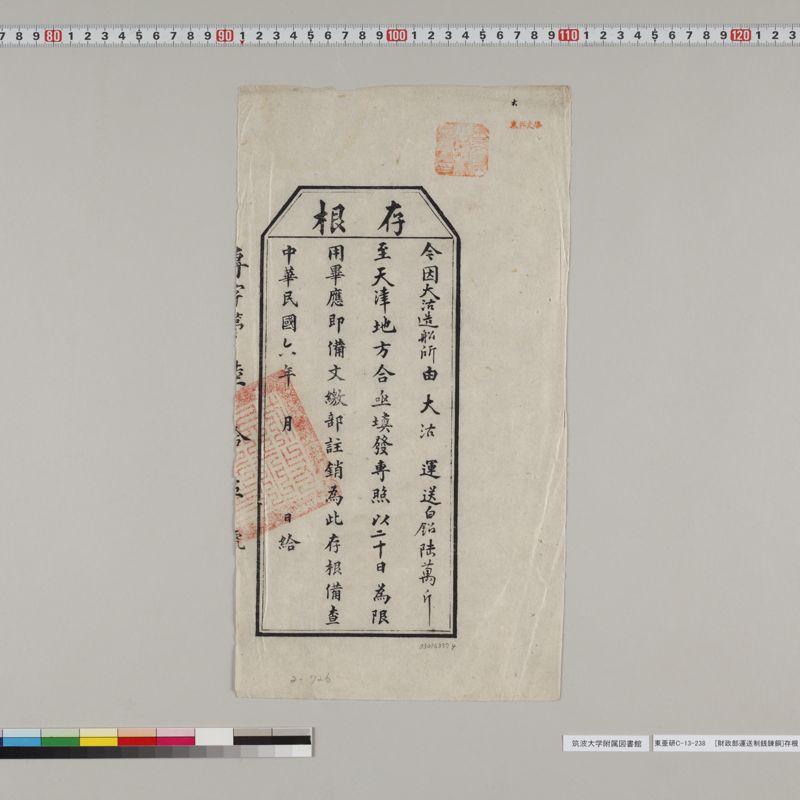 7 8 9 80 1 2 3 4 5 6 7 8 9 90 1 2 3 4 5 6 7 8 9 100 1 2 3 4 5 6 7 8 9 110 1 2 3 4 5 6 7 8 9 120 1 2 3
大
存根
今因大沽造船所由大沽運送白鉛陸萬斤
至天津地方合亟填發専照以二十日為限
用畢應即備文繳部註銷為此存根備查
中華民國六年 月 日給
2-726
筑波大学附属図書館
東亜研C-13-238 [財政部運送制銭錬銅]存根